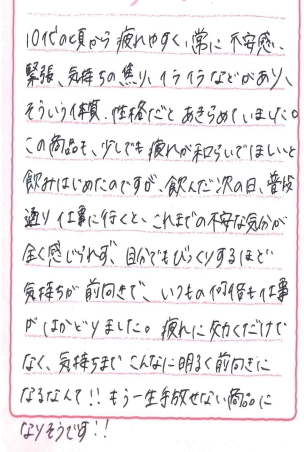 10代の頃から疲れやすく、常に不安感、
緊張、気持ちの焦り、イライラなどがあり、
そういう体質、性格だとあきらめていました。
この商品も、少しでも疲れが和らいでほしいと
飲みはじめたのですが、飲んだ次の日、普段
通り仕事に行くと、これまでの不安な気分が
全く感じられず、自分でもびっくりするほど
気持ちが前向きで、いつもの何倍も仕事
がはかどりました。疲れに効くだけで
なく、気持ちまでこんなに明るく前向きに
なるなんて!!もう一生手放せない商品に
なりそうです!!